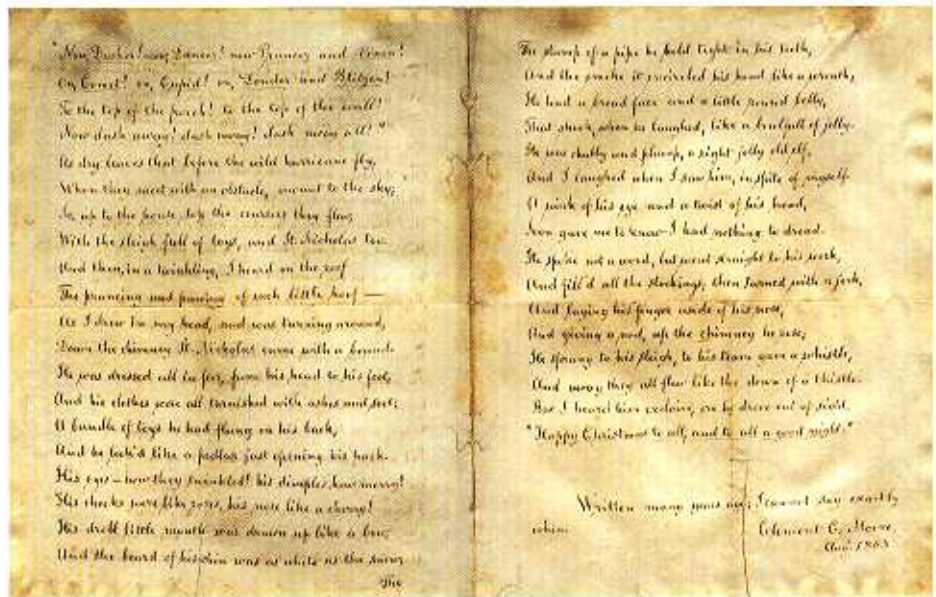 "Now Dasher! now, Dancer! now Prancer and Vixen!
On, Comet! on, Cupid! on, Donder and Blitzen!
To the top of the porch! to the top of the wall!
Now dash away! dash away! dash away all!"
As dry leaves that before the wild hurricane fly,
When they meet with an obstacle, mount to the sky;
So, up to the house-top the coursers they flew,
With the sleigh full of toys, and St. Nicholas too.
And then, in a twinkling, I heard on the roof
The prancing and pawing of each little hoof —
As I drew in my head, and was turning around,
Down the chimney St. Nicholas came with a bound.
He was dressed all in fur, from his head to his foot,
And his clothes were all tarnished with ashes and soot;
A bundle of toys he had flung on his back,
And he look'd like a pedlar just opening his pack.
His eyes – how they twinkled! his dimples, how merry!
His cheeks were like roses, his nose like a cherry!
His droll little mouth was drawn up like a bow,
And the beard of his chin was as white as the snow;
The
The stump of a pipe he held tight in his teeth,
And the smoke it encircled his head like a wreath,
He had a broad face and a little round belly,
That shook, when he laughed, like a bowlfull of jelly.
He was chubby and plump, a right jolly old elf,
And I laughed when I saw him, in spite of myself.
A wink of his eye and a twist of his head,
Soon gave me to know I had nothing to dread.
He spoke not a word, but went straight to his work,
And fill'd all the stockings; then turned with a jerk,
And laying his finger aside of his nose,
And giving a nod, up the chimney he rose;
He sprang to his sleigh, to his team gave a whistle,
And away they all flew like the down of a thistle.
But I heard him exclaim, ere he drove out of sight,
"Happy Christmas to all, and to all a good night."
Written many years ago; I cannot say exactly
when.
Clement C. Moore.
1863